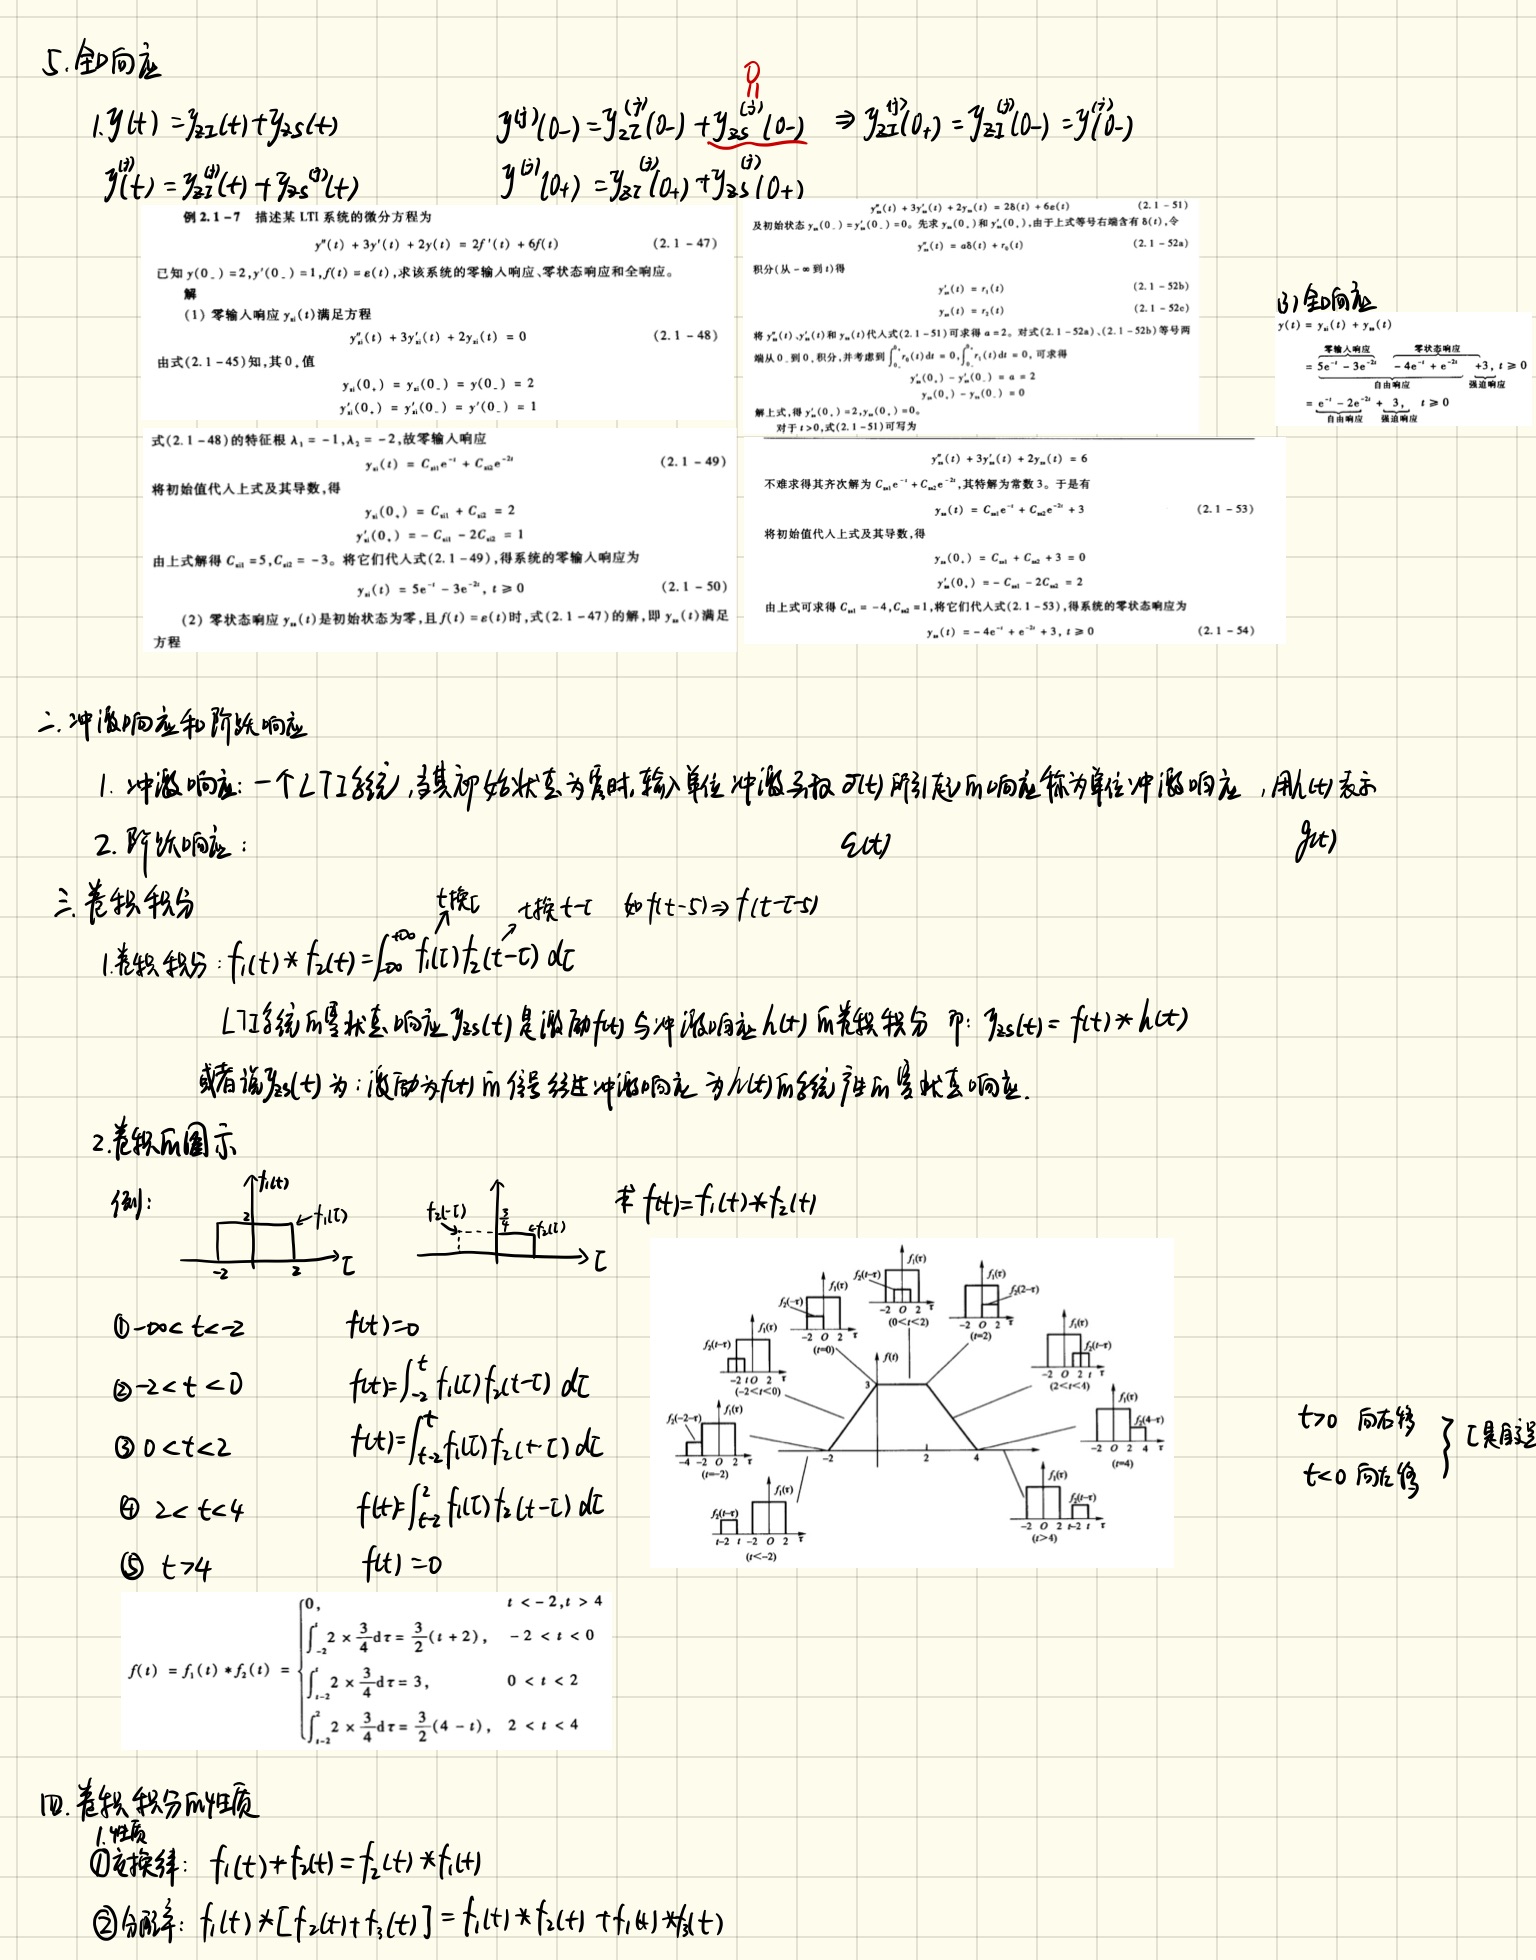 5.全响应
1. y(t) = yZI(t) + yzs(t)
y^(j)(t) = yZI^(j)(t) + yzs^(j)(t)
0
y^(j)(0-) = yZI^(j)(0-) + yzs^(j)(0-) ⇒ yZI^(j)(0+) = yZI^(j)(0-) = y^(j)(0-)
y^(j)(0+) = yZI^(j)(0+) + yzs^(j)(0+)
例 2.1-7 描述某 LTI 系统的微分方程为
y″(t) + 3y′(t) + 2y(t) = 2f′(t) + 6f(t) (2.1-47)
已知 y(0₋) = 2, y′(0₋) = 1, f(t) = ε(t),求该系统的零输入响应、零状态响应和全响应。
解
(1) 零输入响应 yzi(t)满足方程
yzi″(t) + 3yzi′(t) + 2yzi(t) = 0 (2.1-48)
由式(2.1-45)知,其0₊值
yzi(0₊) = yzi(0₋) = y(0₋) = 2
yzi′(0₊) = yzi′(0₋) = y′(0₋) = 1
式(2.1-48)的特征根 λ₁ = -1, λ₂ = -2,故零输入响应
yzi(t) = Czi1e^-t + Czi2e^-2t (2.1-49)
将初始值代入上式及其导数,得
yzi(0₊) = Czi1 + Czi2 = 2
yzi′(0₊) = -Czi1 - 2Czi2 = 1
由上式解得 Czi1 = 5, Czi2 = -3。将它们代入式(2.1-49),得系统的零输入响应为
yzi(t) = 5e^-t - 3e^-2t, t ≥ 0 (2.1-50)
(2) 零状态响应 yzs(t)是初始状态为零,且 f(t) = ε(t)时,式(2.1-47)的解,即 yzs(t)满足
方程
yzs″(t) + 3yzs′(t) + 2yzs(t) = 2δ(t) + 6ε(t) (2.1-51)
及初始状态 yzs(0₋) = yzs′(0₋) = 0。先求 yzs(0₊)和 yzs′(0₊),由于上式等号右端含有 δ(t),令
yzs″(t) = aδ(t) + r₀(t) (2.1-52a)
积分(从 -∞ 到 t)得
yzs′(t) = r₁(t) (2.1-52b)
yzs(t) = r₂(t) (2.1-52c)
将 yzs″(t)、yzs′(t)和 yzs(t)代入式(2.1-51)可求得 a = 2。对式(2.1-52a)、(2.1-52b)等号两
端从 0₋ 到 0₊ 积分,并考虑到 ∫0₋^0₊ r₀(t)dt = 0, ∫0₋^0₊ r₁(t)dt = 0, 可求得
yzs′(0₊) - yzs′(0₋) = a = 2
yzs(0₊) - yzs(0₋) = 0
解上式,得 yzs′(0₊) = 2, yzs(0₊) = 0。
对于 t > 0,式(2.1-51)可写为
yzs″(t) + 3yzs′(t) + 2yzs(t) = 6
不难求得其齐次解为 Czs1e^-t + Czs2e^-2t,其特解为常数 3。于是有
yzs(t) = Czs1e^-t + Czs2e^-2t + 3 (2.1-53)
将初始值代入上式及其导数,得
yzs(0₊) = Czs1 + Czs2 + 3 = 0
yzs′(0₊) = -Czs1 - 2Czs2 = 2
由上式可求得 Czs1 = -4, Czs2 = 1,将它们代入式(2.1-53),得系统的零状态响应为
yzs(t) = -4e^-t + e^-2t + 3, t ≥ 0 (2.1-54)
(3) 全响应
y(t) = yzi(t) + yzs(t)
零输入响应 零状态响应
= 5e^-t - 3e^-2t - 4e^-t + e^-2t + 3, t ≥ 0
自由响应 强迫响应
= e^-t - 2e^-2t + 3, t ≥ 0
自由响应 强迫响应
二.冲激响应和阶跃响应
1. 冲激响应: 一个LTI系统,当其初始状态为零时,输入单位冲激函数δ(t)所引起的响应称为单位冲激响应,用h(t)表示
2. 阶跃响应: ε(t) g(t)
三.卷积积分
t换τ t换t-τ 如f(t-5)⇒f(t-τ-5)
1.卷积积分: f₁(t)*f₂(t) = ∫-∞^+∞ f₁(τ)f₂(t-τ)dτ
LTI系统的零状态响应yzs(t)是激励f(t)与冲激响应h(t)的卷积积分 即: yzs(t) = f(t)*h(t)
或者说yzs(t)为: 激励为f(t)的信号经过冲激响应为h(t)的系统产生的零状态响应.
2.卷积的图示
例: f₁(t) 2 f₁(τ) -2 2 τ
f₂(-τ) 3/4 f₂(τ) τ
求 f(t)=f₁(t)*f₂(t)
① -∞<t<-2 f(t)=0
② -2<t<0 f(t)=∫-2^t f₁(τ)f₂(t-τ)dτ
③ 0<t<2 f(t)=∫t-2^t f₁(τ)f₂(t-τ)dτ
④ 2<t<4 f(t)=∫t-2^2 f₁(τ)f₂(t-τ)dτ
⑤ t>4 f(t)=0
f₂(t-τ) f₁(τ) -2 O 2 τ (0<t<2)
f₂(-τ) f₁(τ) -2 O 2 τ (t=0)
f₁(τ) f₂(2-τ) -2 O 2 τ (t=2)
f₂(t-τ) f₁(τ) -2 t O 2 τ (-2<t<0)
f₁(τ) f₂(t-τ) -2 O 2 t τ (2<t<4)
f₂(-2-τ) f₁(τ) -4 -2 O 2 τ (t=-2)
f₁(τ) f₂(4-τ) -2 O 2 4 τ (t=4)
f₂(t-τ) f₁(τ) t-2 t -2 O 2 τ (t<-2)
f₁(τ) f₂(t-τ) -2 O 2 t-2 t τ (t>4)
f(t) 3 -2 2 4
t>0 向右移
t<0 向左移
τ是自变
f(t) = f₁(t)*f₂(t) =
0, t < -2, t > 4
∫-2^t 2 × 3/4 dτ = 3/2(t + 2), -2 < t < 0
∫t-2^t 2 × 3/4 dτ = 3, 0 < t < 2
∫t-2^2 2 × 3/4 dτ = 3/2(4 - t), 2 < t < 4
四.卷积积分的性质
1.性质
①交换律: f₁(t)*f₂(t) = f₂(t)*f₁(t)
②分配率: f₁(t)*[f₂(t)+f₃(t)] = f₁(t)*f₂(t)+f₁(t)*f₃(t)